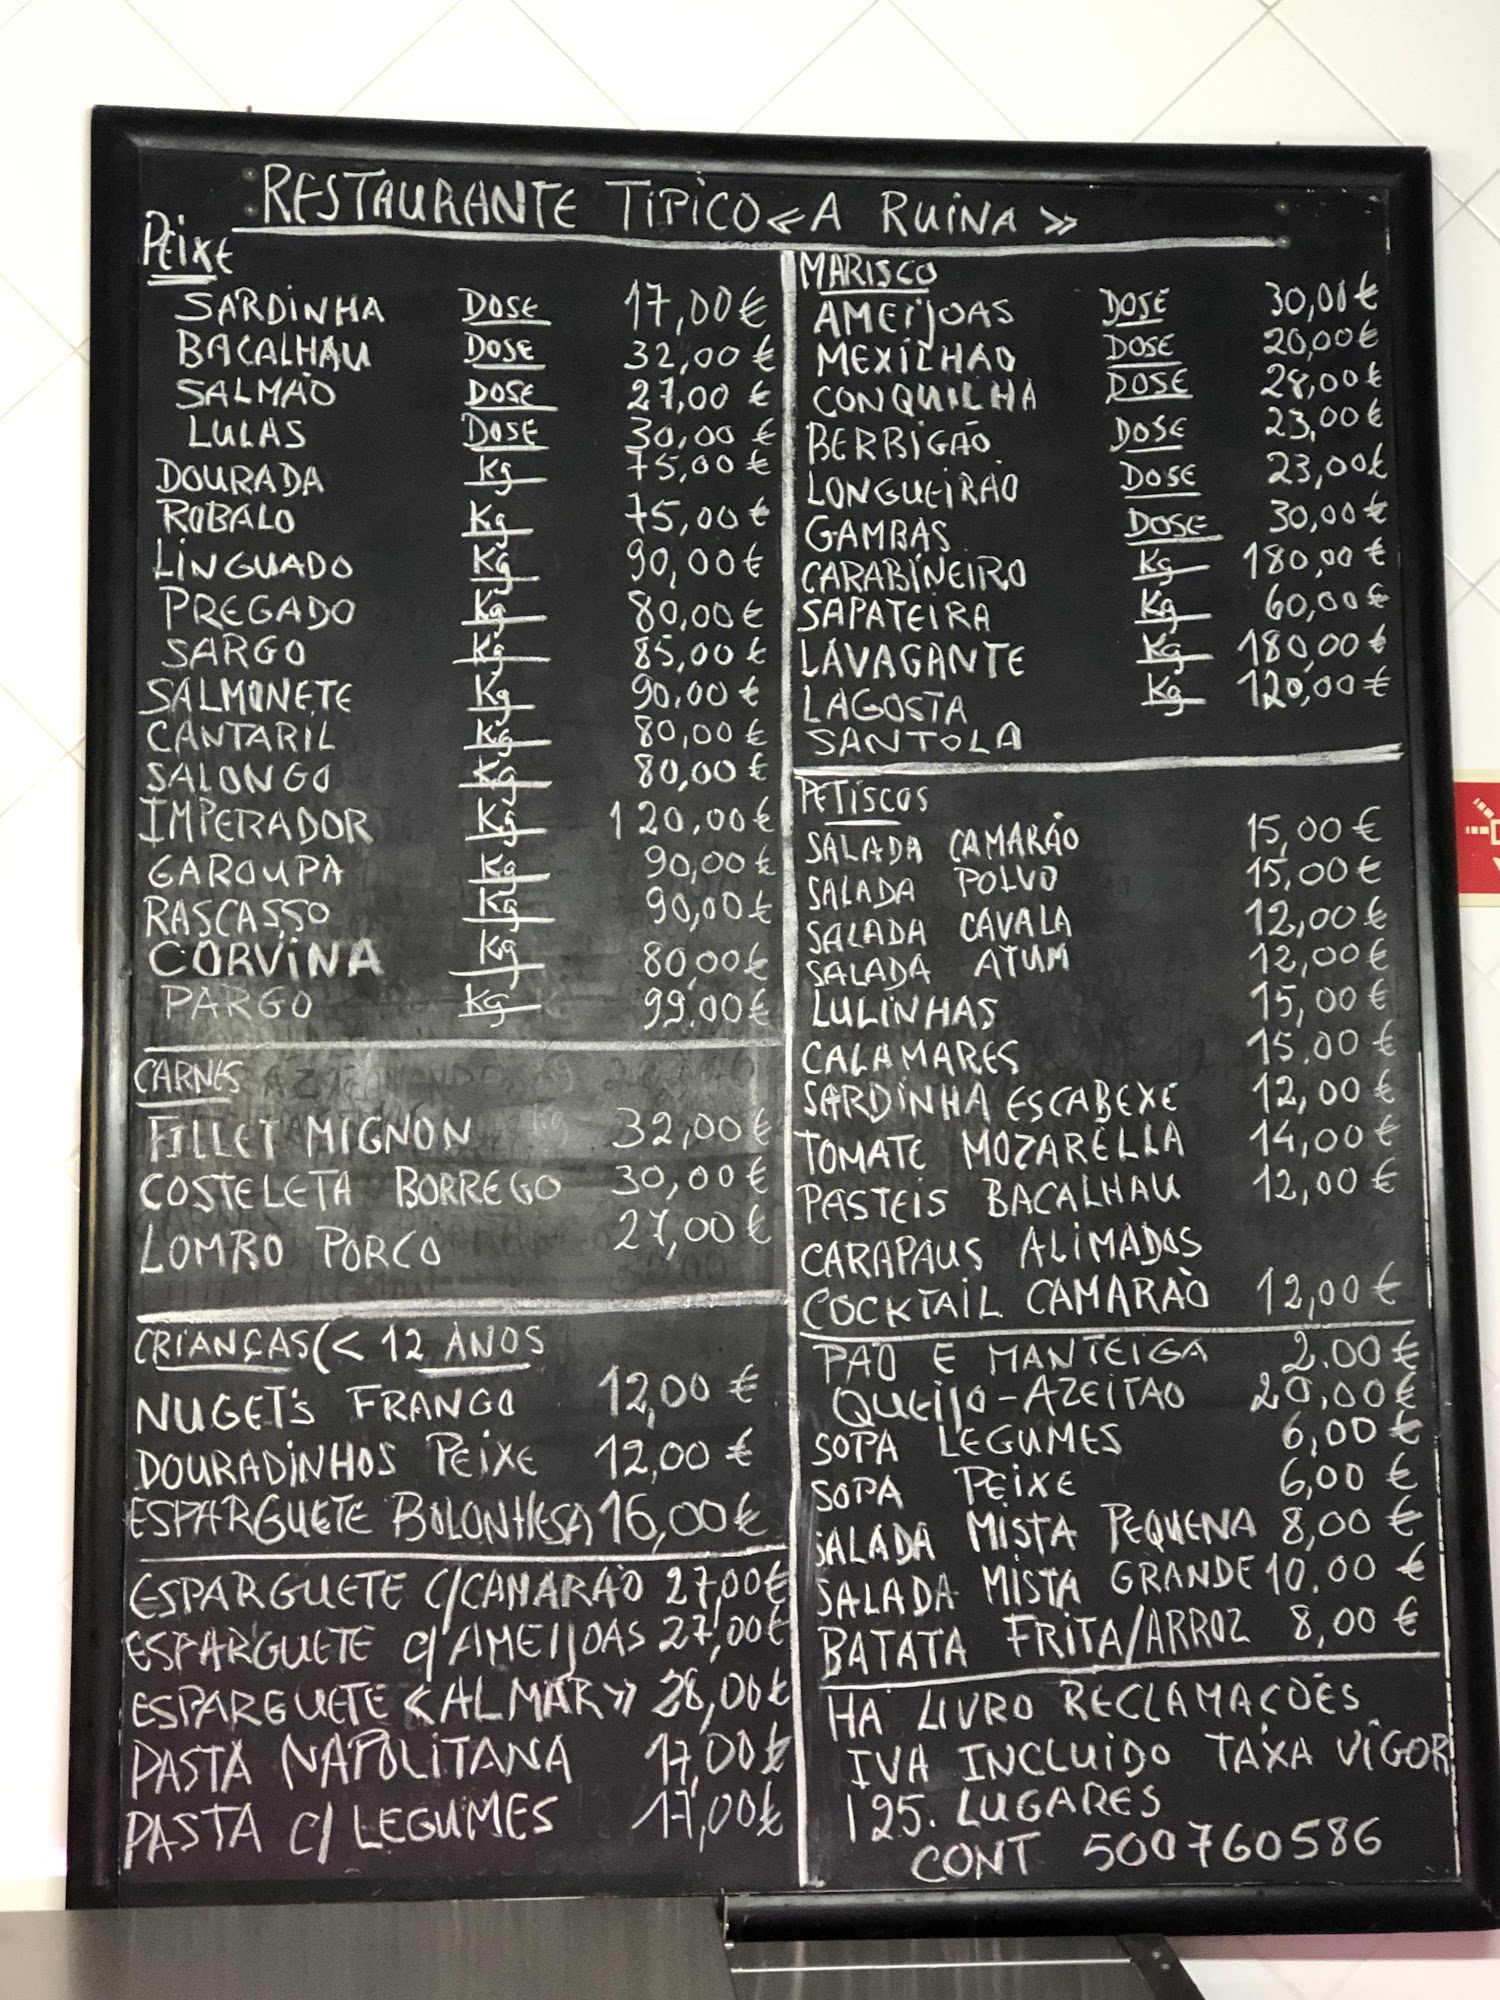 RESTAURANTE TIPICO «A RUINA»
PEIXE
SARDINHA DOSE 17,00€
BACALHAU DOSE 32,00€
SALMÃO DOSE 27,00€
LULAS DOSE 30,00€
DOURADA Kg 75,00€
ROBALO Kg 75,00€
LINGUADO Kg 90,00€
PREGADO Kg 80,00€
SARGO Kg 85,00€
SALMONETE Kg 90,00€
CANTARIL Kg 80,00€
SALONGO Kg 80,00€
IMPERADOR Kg 120,00€
GAROUPA Kg 90,00€
RASCASSO Kg 90,00€
CORVINA Kg 80,00€
PARGO Kg 99,00€
CARNES
FILLET MIGNON 32,00€
COSTELETA BORREGO 30,00€
LOMBO PORCO 27,00€
CRIANÇAS (< 12 ANOS
NUGETS FRANGO 12,00€
DOURADINHOS PEIXE 12,00€
ESPARGUETE BOLONHESA 16,00€
ESPARGUETE C/CAMARÃO 27,00€
ESPARGUETE C/AMEIJOAS 27,00€
ESPARGUETE «ALMAR» 28,00€
PASTA NAPOLITANA 17,00€
PASTA C/ LEGUMES 17,00€
MARISCO
AMEIJOAS DOSE 30,00€
MEXILHAO DOSE 20,00€
CONQUILHA DOSE 28,00€
BERBIGÃO DOSE 23,00€
LONGUEIRÃO DOSE 23,00€
GAMBAS DOSE 30,00€
CARABINEIRO Kg 180,00€
SAPATEIRA Kg 60,00€
LAVAGANTE Kg 180,00€
LAGOSTA Kg 120,00€
SANTOLA
PETISCOS
SALADA CAMARÃO 15,00€
SALADA POLVO 15,00€
SALADA CAVALA 12,00€
SALADA ATUM 12,00€
LULINHAS 15,00€
CALAMARES 15.00€
SARDINHA ESCABEXE 12,00€
TOMATE MOZARÉLLA 14,00€
PASTEIS BACALHAU 12,00€
CARAPAUS ALIMADOS
COCKTAIL CAMARÃO 12,00€
PÃO E MANTEIGA 2.00€
QUEIJO-AZEITAO 20,00€
SOPA LEGUMES 6,00€
SOPA PEIXE 6,00€
SALADA MISTA PEQUENA 8,00€
SALADA MISTA GRANDE 10.00€
BATATA FRITA/ARROZ 8,00€
HÁ LIVRO RECLAMAÇÕES
IVA INCLUIDO TAXA VIGOR
125. LUGARES
CONT 500760586